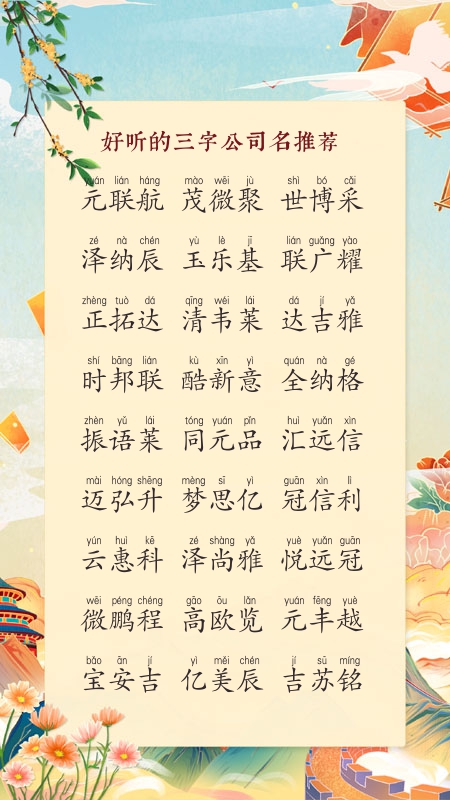 好听的三字公司名推荐
yuán lián háng mào wēi jù shì bó cǎi
元联航 茂微聚 世博采
zé nà chén yù lè jī lián guǎng yào
泽纳辰 玉乐基 联广耀
zhèng tuò dá qīng wéi lái dá jí yǎ
正拓达 清韦莱 达吉雅
shí bāng lián kù xīn yì quán nà gé
时邦联 酷新意 全纳格
zhèn yǔ lái tóng yuán pǐn huì yuǎn xìn
振语莱 同元品 汇远信
mài hóng shēng mèng sī yì guān xìn lì
迈弘升 梦思亿 冠信利
yún huì kē zé shàng yǎ yuè yuǎn guān
云惠科 泽尚雅 悦远冠
wēi péng chéng gāo ōu lǎn yuán fēng yuè
微鹏程 高欧览 元丰越
bǎo ān jí yì měi chén jí sū míng
宝安吉 亿美辰 吉苏铭